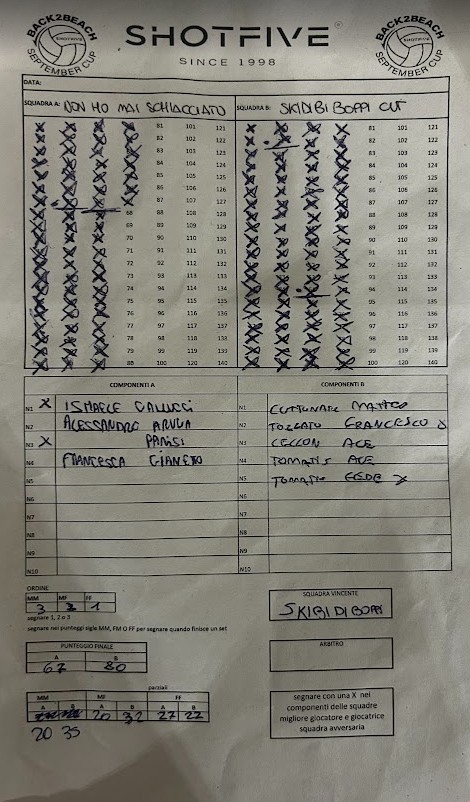 BACK2BEACH
SHOTFIVE
SEPTEMBER CUP
SHOTFIVE
SINCE 1998
BACK2BEACH
SHOTFIVE
SEPTEMBER CUP
DATA:
SQUADRA A: NON HO MAI SCHIACCIATO SQUADRA B: SKIDIBI BOPPI CUT
81 101 121 81 101 121
82 102 122 82 102 122
83 103 123 83 103 123
84 104 124 84 104 124
85 105 125 85 105 125
86 106 126 86 106 126
87 107 127 87 107 127
68 88 108 128 88 108 128
69 89 109 129 89 109 129
70 90 110 130 90 110 130
71 91 111 131 91 111 131
72 92 112 132 92 112 132
73 93 113 133 93 113 133
74 94 114 134 94 114 134
75 95 115 135 95 115 135
76 96 116 136 96 116 136
77 97 117 137 97 117 137
78 98 118 138 98 118 138
79 99 119 139 99 119 139
80 100 120 140 100 120 140
COMPONENTI A COMPONENTI B
N1 X ISMAELE GALLUCCI N1 MATTEO
N2 ALESSANDRO ARUGA N2 TOZZATO FRANCESCO X
N3 X PARISI N3 CELLON ACE
N4 FRANCESCA GIANETTO N4 TOMATIS ACE
N5 N5 TOMATIS FEDE X
N6 N6
N7 N7
N8 N8
N9 N9
N10 N10
ORDINE
MM MF FF
3 2 1
segnare 1, 2 o 3
segnare nei punteggi sigle MM, FM O FF per segnare quando finisce un set
SQUADRA VINCENTE
SKIBIDI BOPPI
PUNTEGGIO FINALE
A B
67 80
ARBITRO
parziali
MM MF FF
A B A B A B
20 32 27 22
20 35
segnare con una X nei
componenti delle squadre
migliore giocatore e giocatrice
squadra avversaria